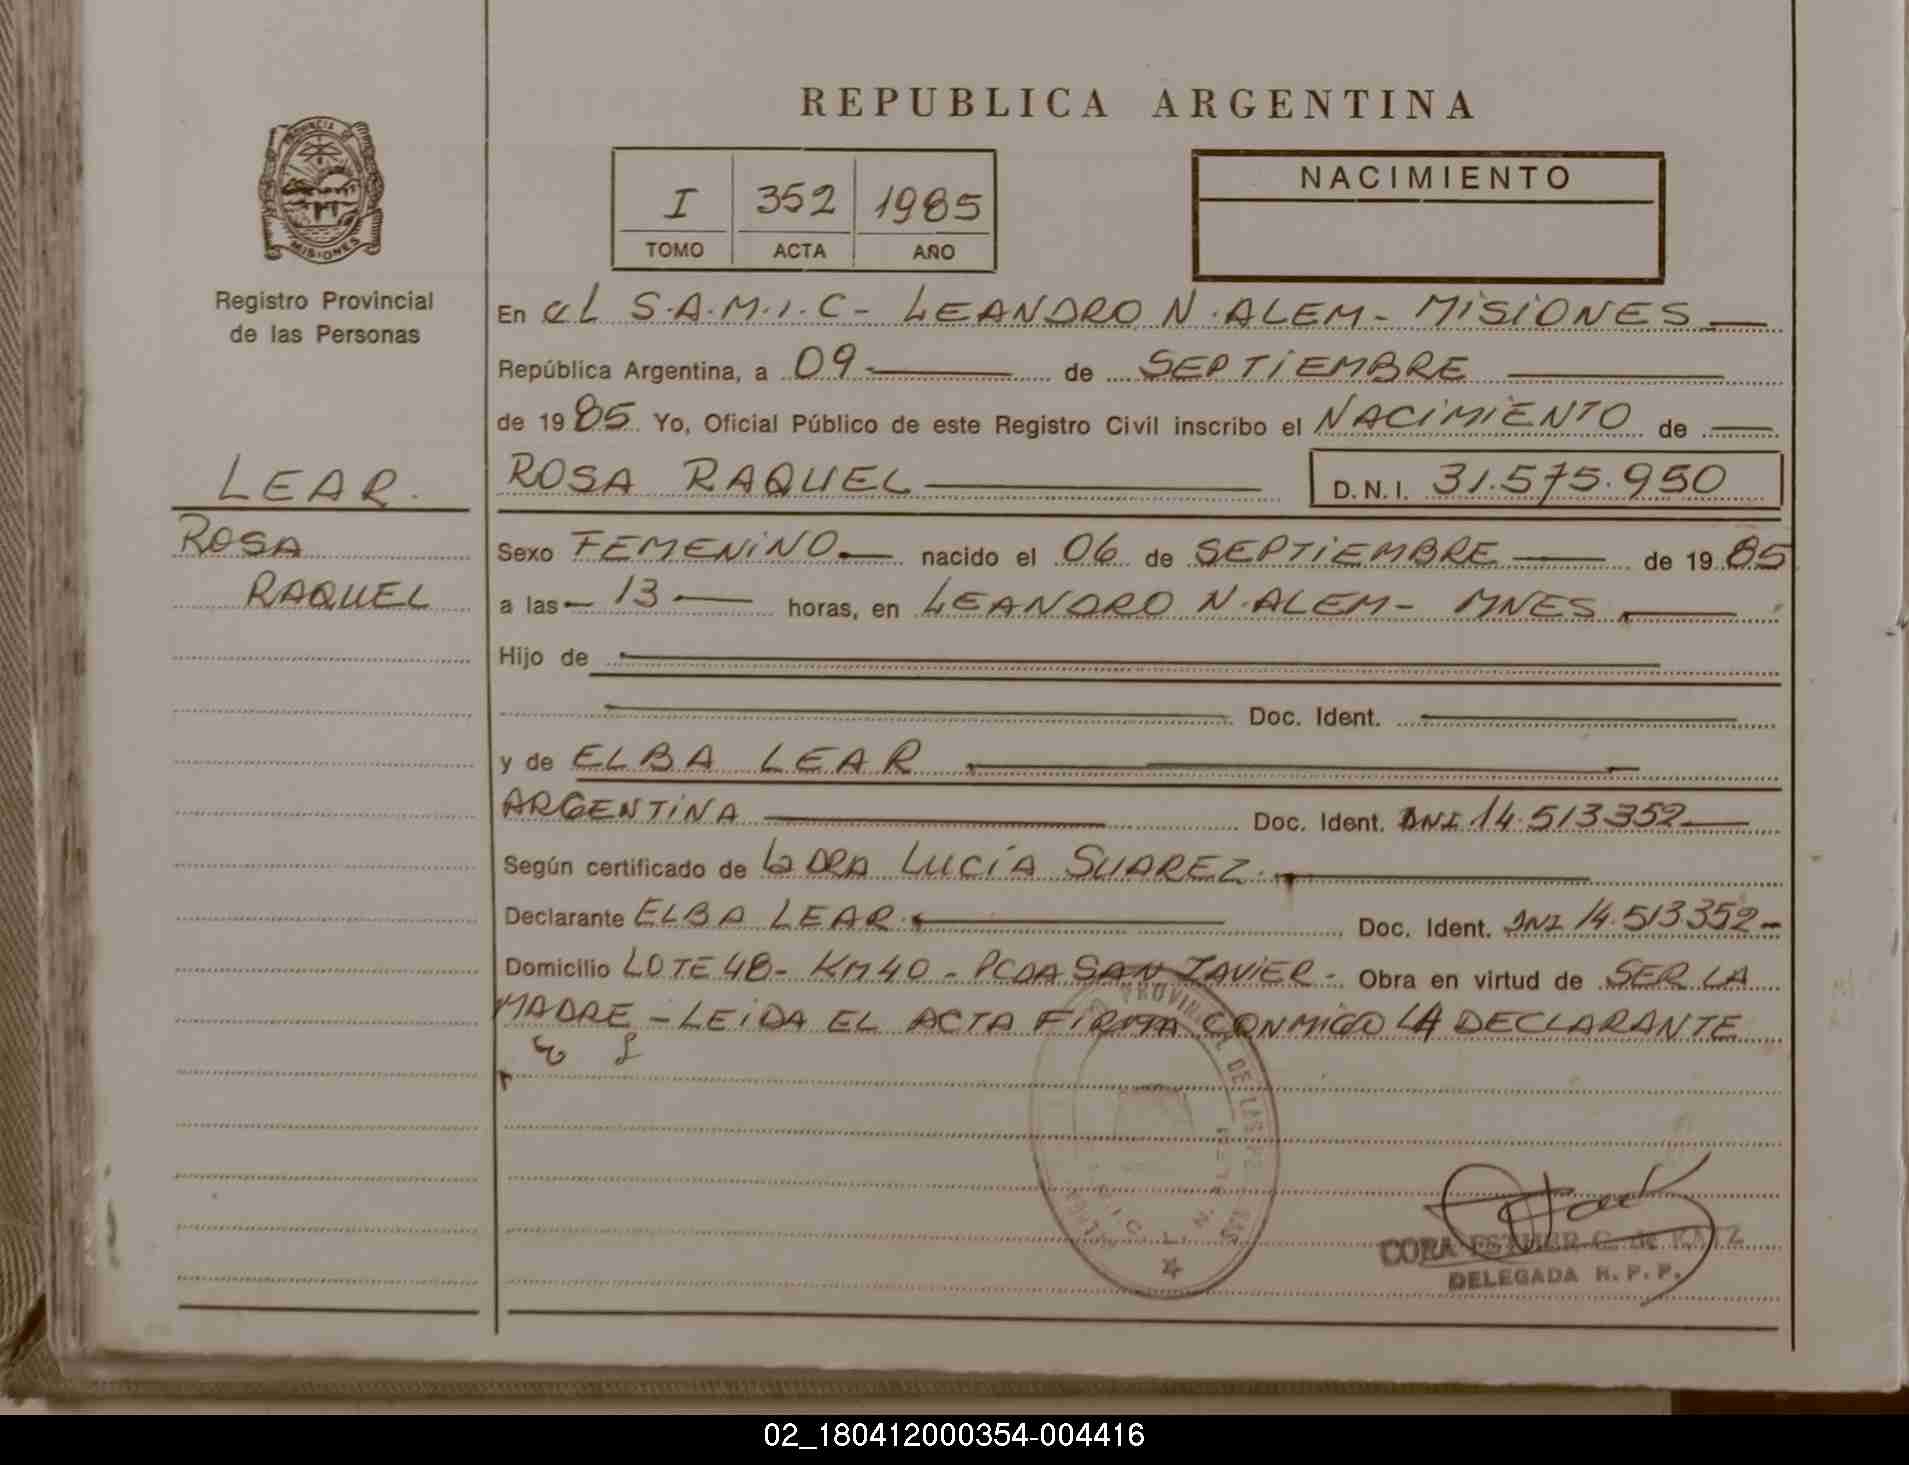 REPUBLICA ARGENTINA
PROVINCIA DE
MISIONES
Registro Provincial
de las Personas
I 352 1985
TOMO ACTA AÑO
NACIMIENTO
En el S.A.M.I.C- LEANDRO N. ALEM- MISIONES
República Argentina, a 09 de SEPTIEMBRE
de 1985 Yo, Oficial Público de este Registro Civil inscribo el NACIMIENTO de
LEAR.
ROSA
RAQUEL
ROSA RAQUEL D.N.I. 31.575.950
Sexo FEMENINO nacido el 06 de SEPTIEMBRE de 1985
a las 13 horas, en LEANDRO N. ALEM- MNES
Hijo de
Doc. Ident.
y de ELBA LEAR
ARGENTINA Doc. Ident. DNI 14.513352
Según certificado de La DRA LUCÍA SUAREZ.
Declarante ELBA LEAR. Doc. Ident. DNI 14.513.352-
Domicilio LOTE 48- KM 40 - PCDA SAN JAVIER- Obra en virtud de SER LA
MADRE - LEIDA EL ACTA FIRMA CONMIGO LA DECLARANTE
E L
PROVINCIAL DE LAS
CORA ESTHER C. de
DELEGADA R. P. P.
02_180412000354-004416